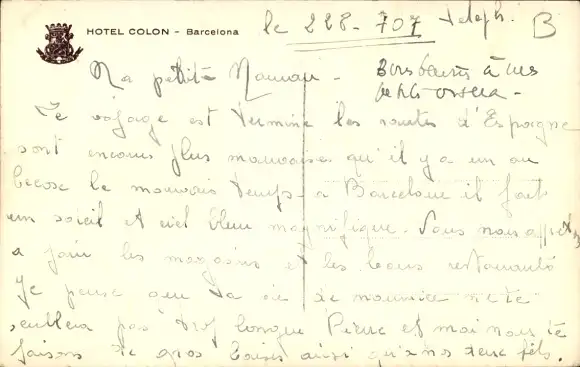 HOTEL COLON - Barcelona
le 228-707 teleph. B
Ma petite Maman - Bons baisers à mes
petits
Le voyage est terminé les routes d'Espagne
sont encores plus mauvaises qu'il y a un an
le mauvais temps - a Barcelone il fait
un soleil et ciel bleu magnifique. Nous nous
a les magasins et les bons restaurants
Je pense que ta vie de nourrice ne te
semblera pas trop longue Pierre et moi nous te
faisons de gros baises ainsi qu'a nos deux fils.